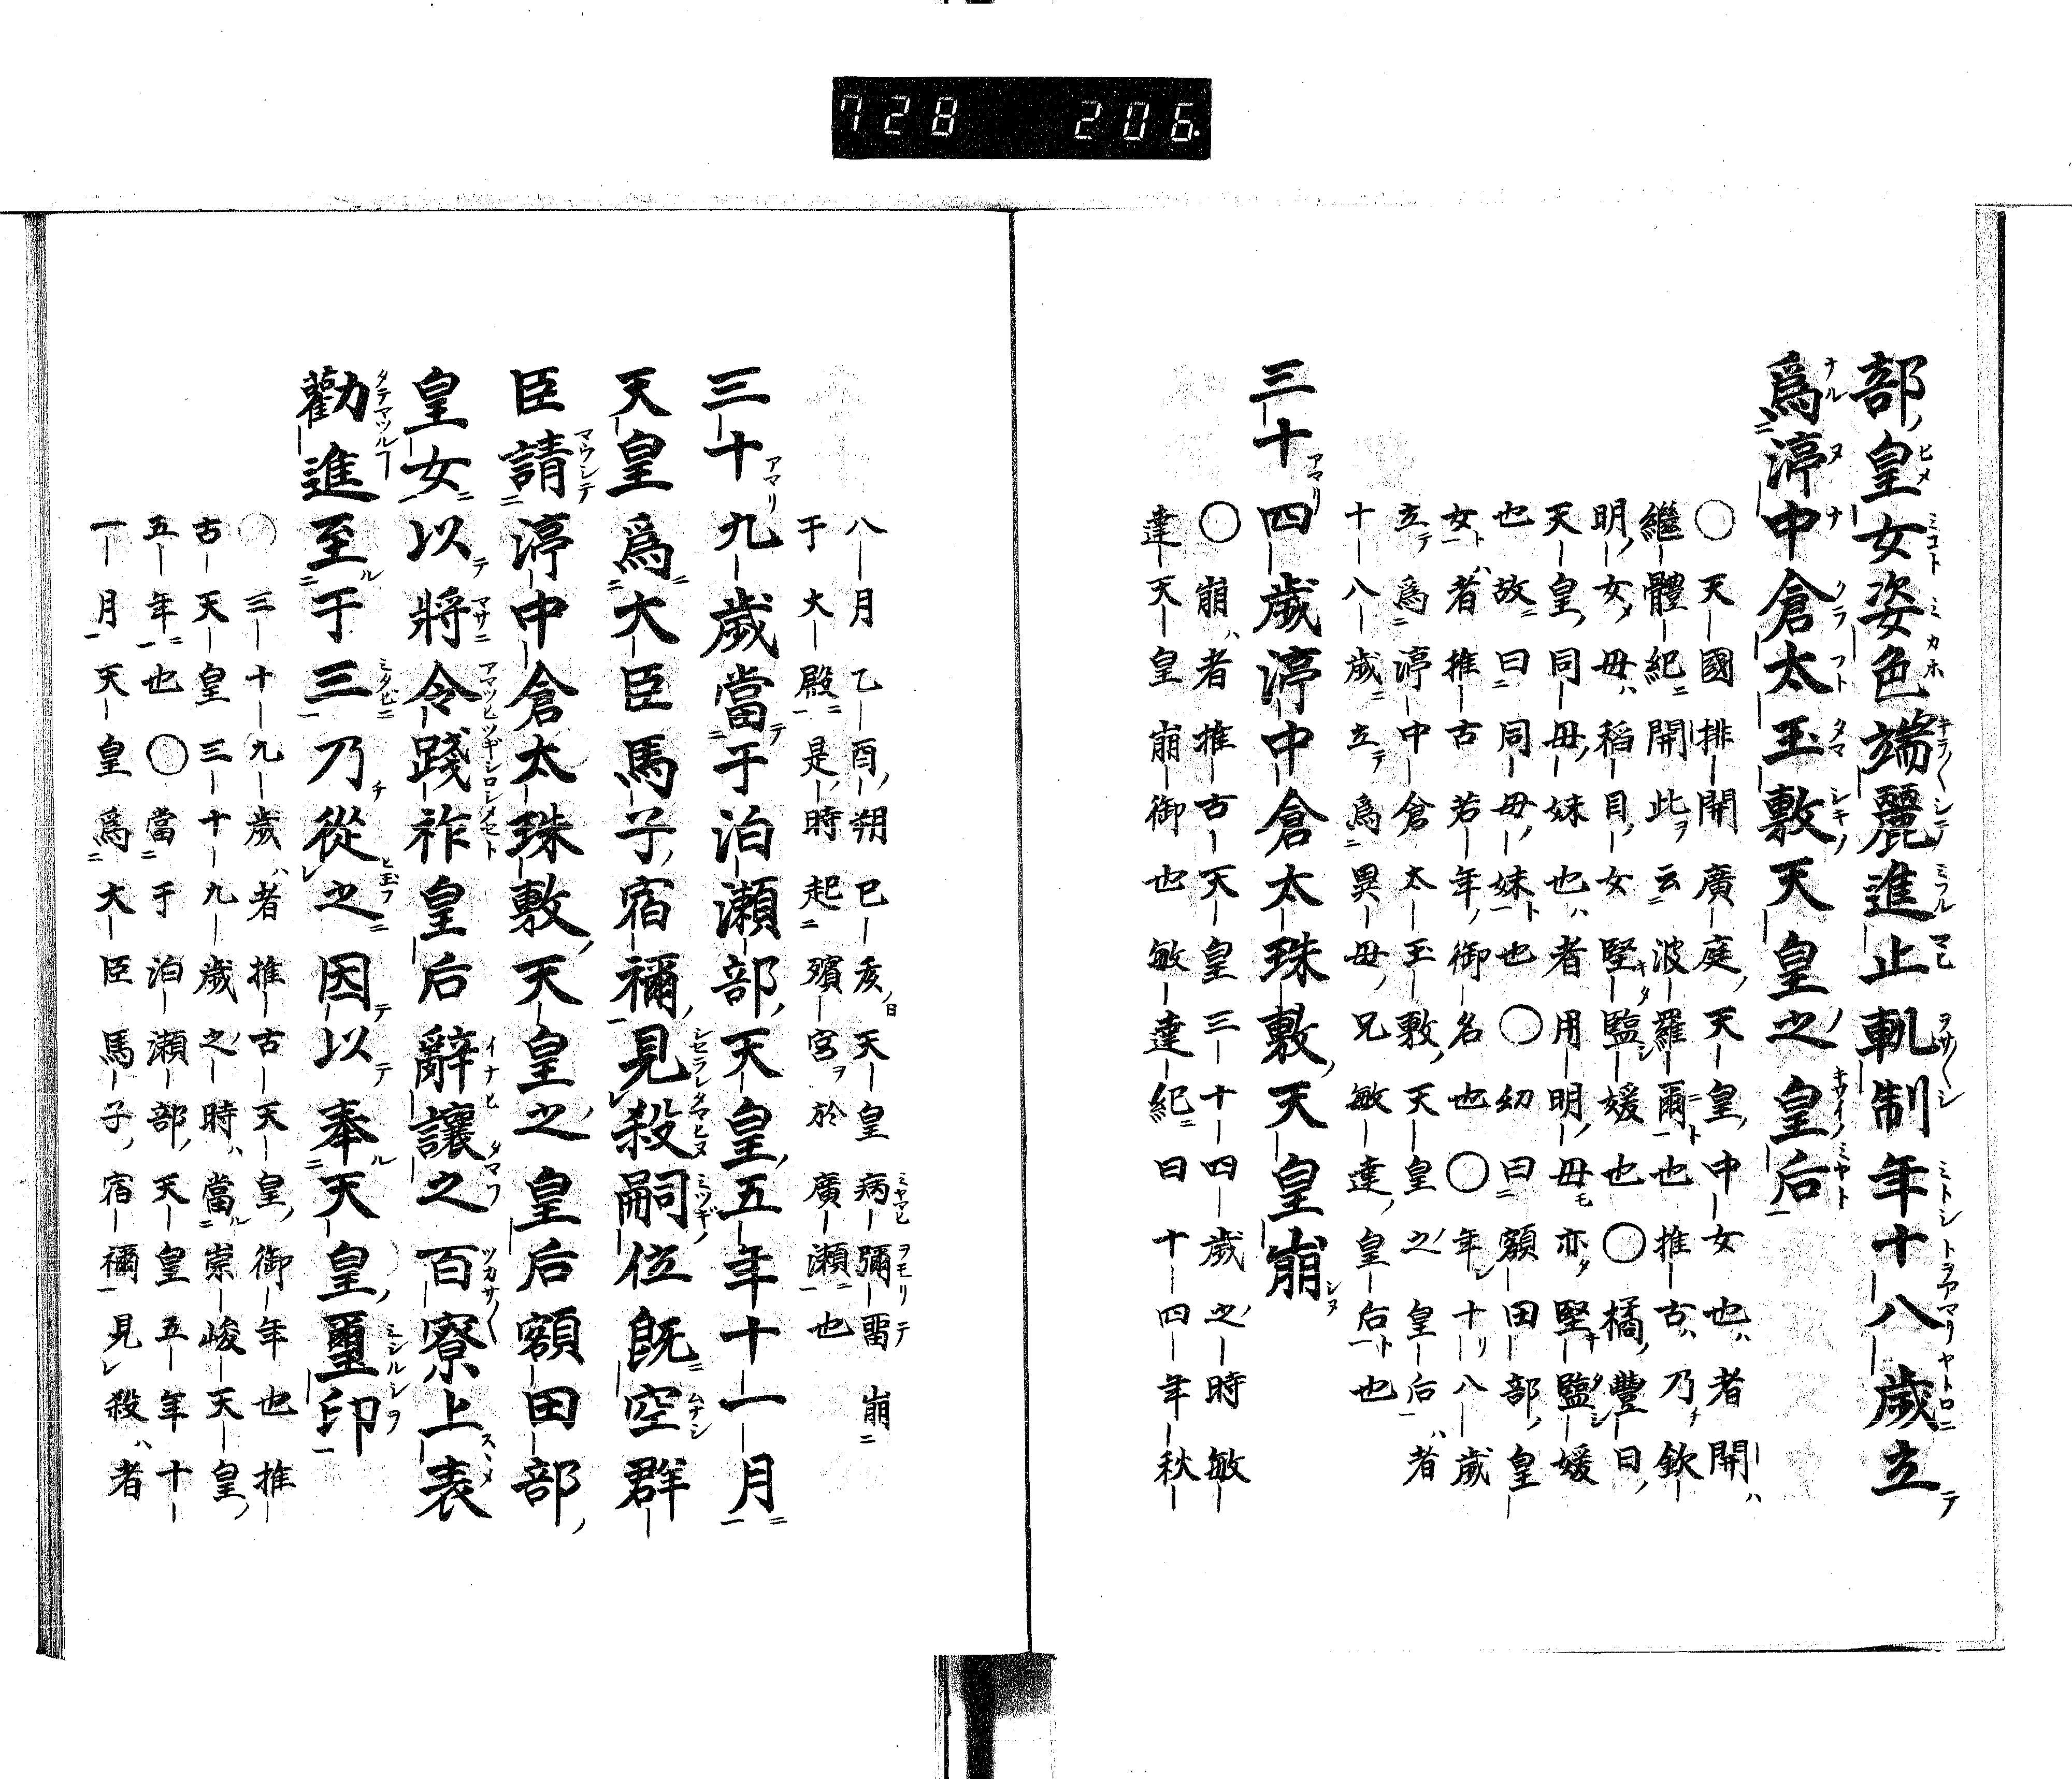 728 206
部皇女姿色端麗進止軌制年十八歲立
爲渟中倉太玉敷天皇之皇后
○天國排開廣庭天皇中女也者開
繼體紀開此云波羅爾也推古乃欽
明女母稻目女堅鹽媛也○橘豐日
天皇同母妹也者用明母亦堅鹽媛
也故曰同母妹也○幼曰額田部皇
女者推古若年御名也○年十八歲
立爲渟中倉太玉敷天皇之皇后者
十八歲立爲異母兄敏達皇后也
三十四歲渟中倉太珠敷天皇崩
○崩者推古天皇三十四歲之時敏
達天皇崩御也敏達紀曰十四年秋
八月乙酉朔已亥天皇病彌留崩
于大殿是時起殯宮於廣瀬也
三十九歲當于泊瀬部天皇五年十一月
天皇爲大臣馬子宿禰見殺嗣位既空群
臣請渟中倉太珠敷天皇之皇后額田部
皇女以將令踐祚皇后辭讓之百寮上表
勸進至于三乃從之因以奉天皇璽印
○三十九歲者推古天皇御年也推
古天皇三十九歲之時當崇峻天皇
五年也○當于泊瀬部天皇五年十
一月天皇爲大臣馬子宿禰見殺者